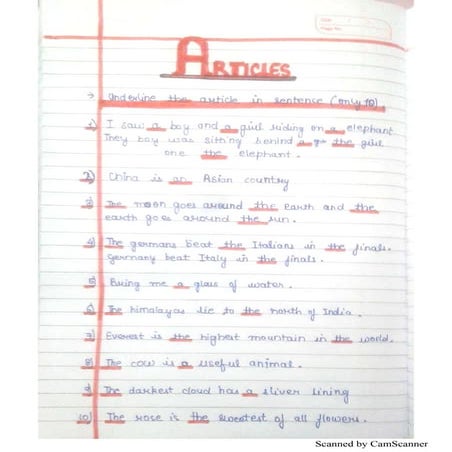 Date
Page No.
ARTICLES
→ Underline the article in sentence (only 10)
1) I saw a boy and a girl riding on a elephant
They boy was sitting behind a the girl
one the elephant.
2) China is an Asian country
3) The moon goes around the earth and the
earth goes around the sun.
4) The germans beat the Italians in the finals.
Germany beat Italy in the finals.
5) Bring me a glass of water.
6) The himalayas lie to the north of India.
7) Everest is the highest mountain in the world.
8) The cow is a useful animal.
9) The darkest cloud has a sliver lining
10) The rose is the sweetest of all flowers.
Scanned by CamScanner